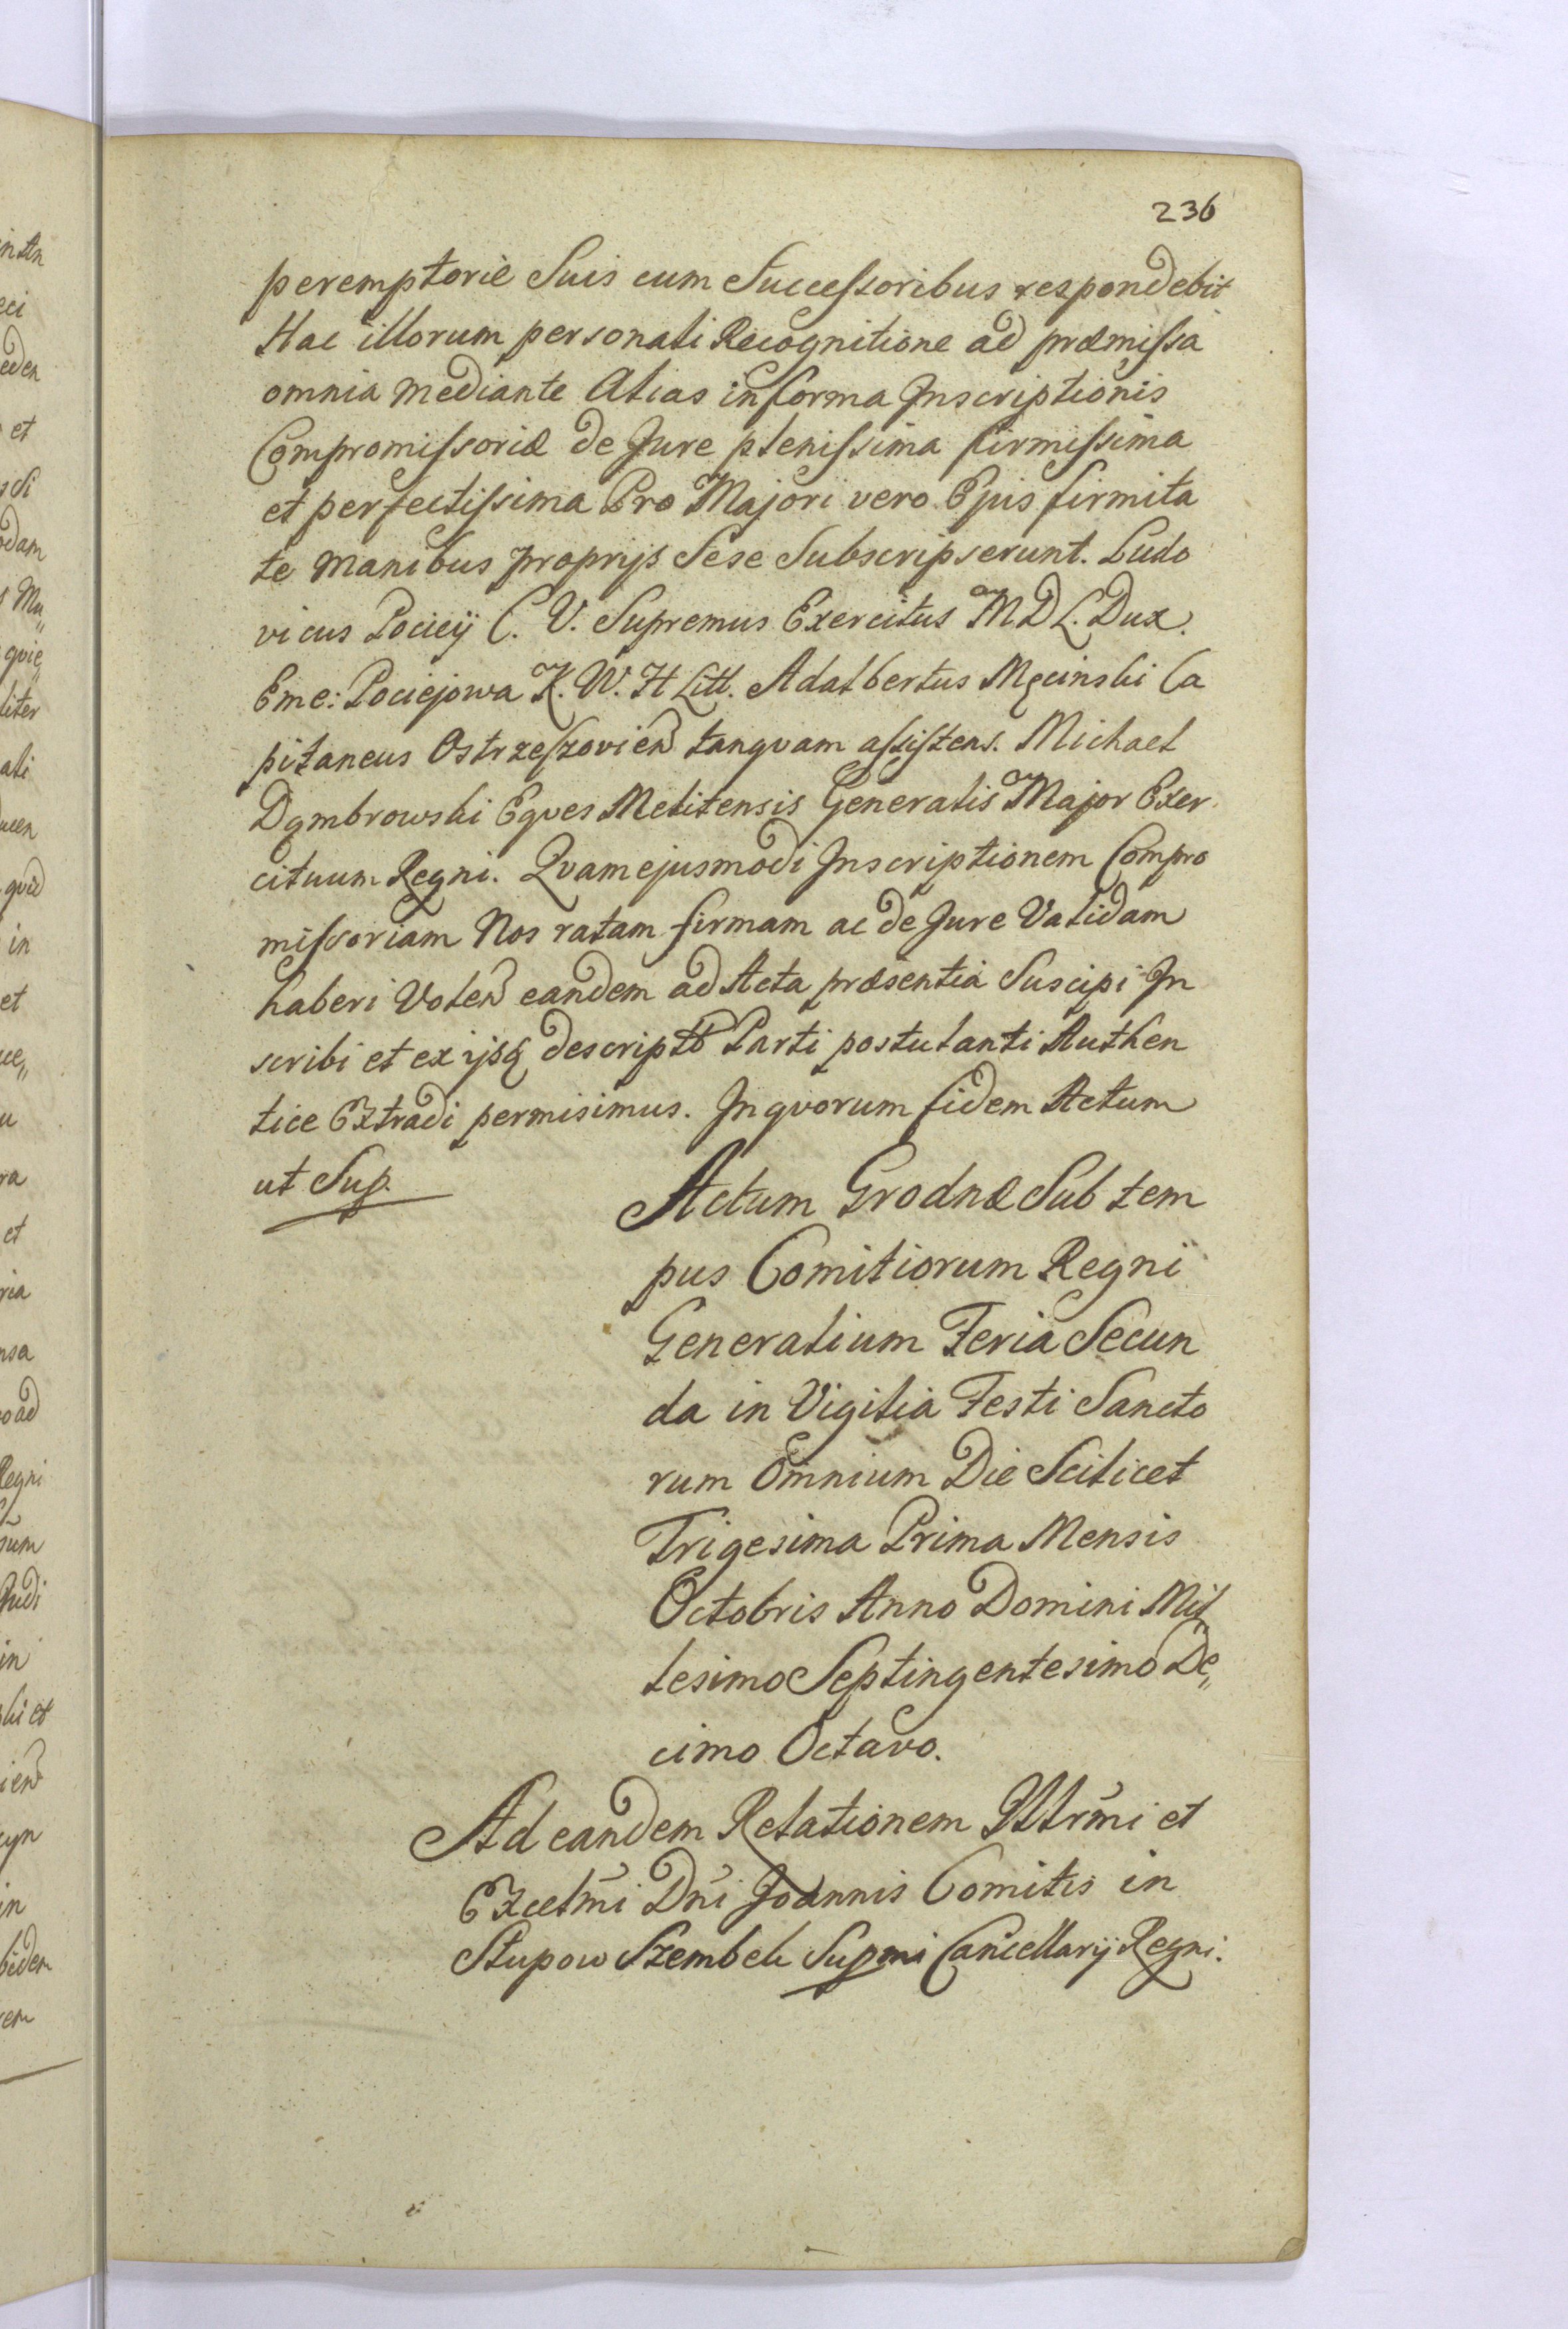 236
peremptorie Suis cum Succeſsoribus respondebit
Hac illorum personali Recognitione ad præmiſsa
omnia mediante Alias in forma Inscriptionis
Compromiſsoriæ de Jure pleniſsima firmiſsima
et perfectiſsima Pro Majori vero Ejus firmita
te manibus proprijs Sese Subscripserunt. Ludo
vicus Pociej C. V. Supremus Exercitus M D L. Dux.
Eme: Pociejowa K. W. H Litt. Adalbertus Męcinski Ca
pitaneus Ostrzeſzovien tanquam aſsiſtens. Michael
Dąmbrowski Eqves Melitensis Generalis Major Exer
cituum Regni. Qvam ejusmodi Inscriptionem Compro
miſsoriam Nos ratam firmam ac de Jure Validam
haberi Volen eandem ad Acta præsentia Suscipi In
scribi et ex ijsq descriptã Parti postulanti Authen
tice Extradi permisimus. In qvorum fidem Actum
ut Sup.
Actum Grodnæ Sub tem
pus Comitiorum Regni
Generalium Feria Secun
da in Vigilia Festi Sancto
rum Omnium Die Scilicet
Trigesima Prima Mensis
Octobris Anno Domini Mil
lesimo Septingentesimo De„
cimo Octavo.
Ad eandem Relationem Illr̃mi et
Excelm̃i Dñi Joannis Comitis in
Słupow Szembek Supmi Cancellarij Regni.